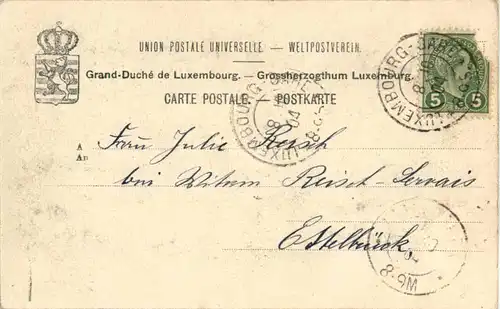 UNION POSTALE UNIVERSELLE. — WELTPOSTVEREIN.
Grand-Duché de Luxembourg. — Grossherzogthum Luxemburg.
CARTE POSTALE. — POSTKARTE
5 5
LUXEMBOURG-GARE
8
04
8-9S
LUXEMBOURG
8
04
8-9S
A
An
Frau Julie Reisch
bei Witwe Reisch-Servais
Ettelbrück
8-9M